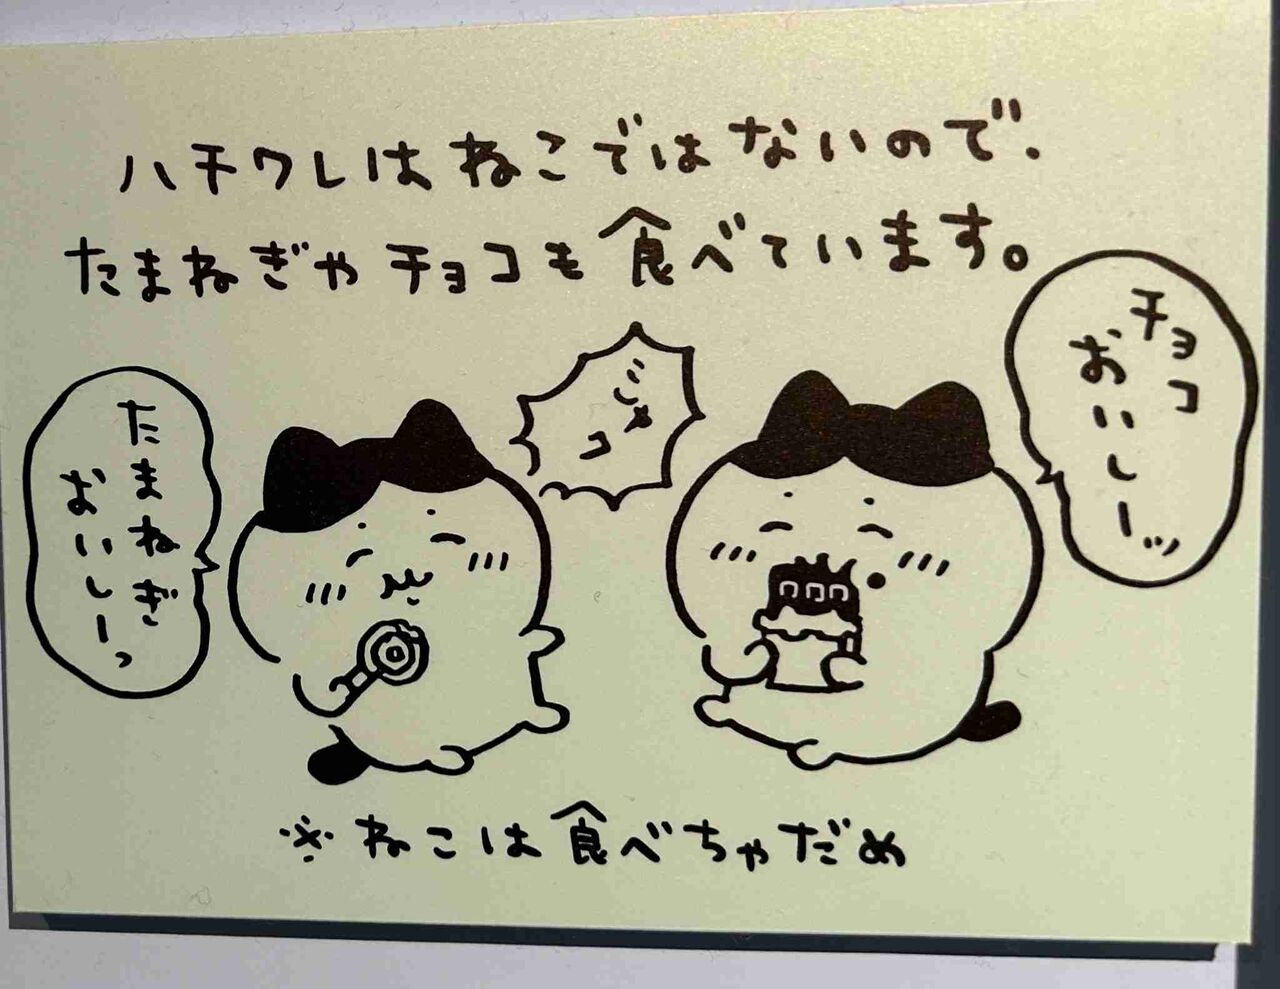 ハチワレはねこではないので、
たまねぎやチョコも食べています。
チョコ
おいしーッ
ジャコ
たまねぎ
おいしーっ
※ねこは食べちゃだめ